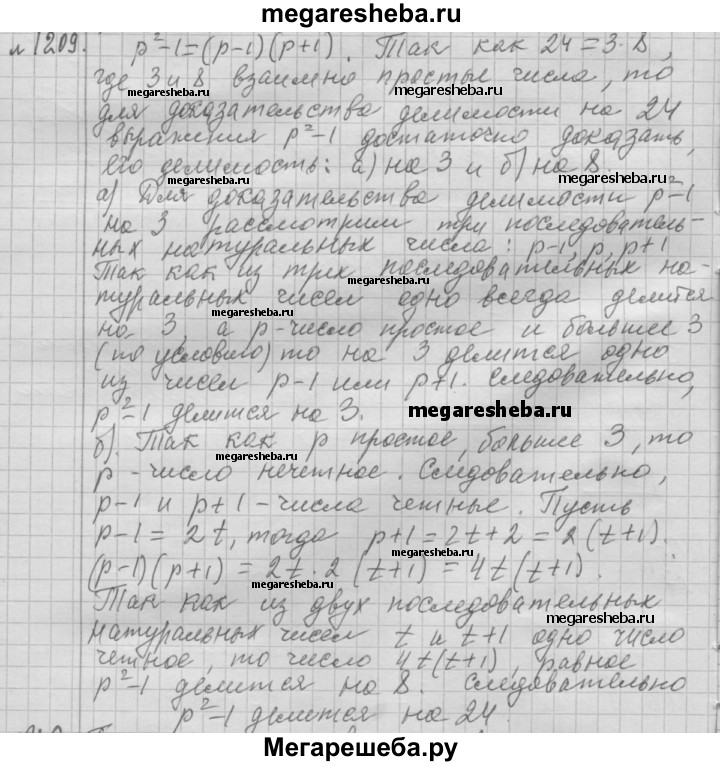 megaresheba.ru
№1209. p²-1=(p-1)(p+1). Так как 24=3·8,
где 3 и 8 взаимно простые числа, то
megaresheba.ru megaresheba.ru
для доказательства делимости на 24
выражения p²-1 достаточно доказать,
его делимость: а) на 3 и б) на 8.
megaresheba.ru megaresheba.ru
а) Для доказательства делимости p²-1
на 3 рассмотрим три последователь-
ных натуральных числа: p-1, p, p+1
Так как из трех последовательных на-
megaresheba.ru
туральных чисел одно всегда делится
на 3, а p-число простое и больше 3
megaresheba.ru
(по условию) то на 3 делится одно
из чисел p-1 или p+1. Следовательно,
p²-1 делится на 3.
megaresheba.ru
б). Так как p простое, больше 3, то
p-число нечетное. Следовательно,
p-1 и p+1-числа четные. Пусть
p-1=2t, тогда p+1=2t+2=2(t+1).
megaresheba.ru
(p-1)(p+1)=2t·2(t+1)=4t(t+1).
megaresheba.ru
Так как из двух последовательных
натуральных чисел t и t+1 одно число
четное, то число 4t(t+1), равное
p²-1 делится на 8. Следовательно
p²-1 делится на 24.
Мегарешеба.ру